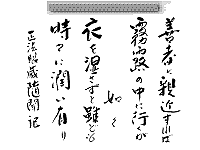 善者に親近すれば
霧露の中に行くが
如く
衣を湿さずと雖ども
時々に潤い有り
正法眼蔵随聞記